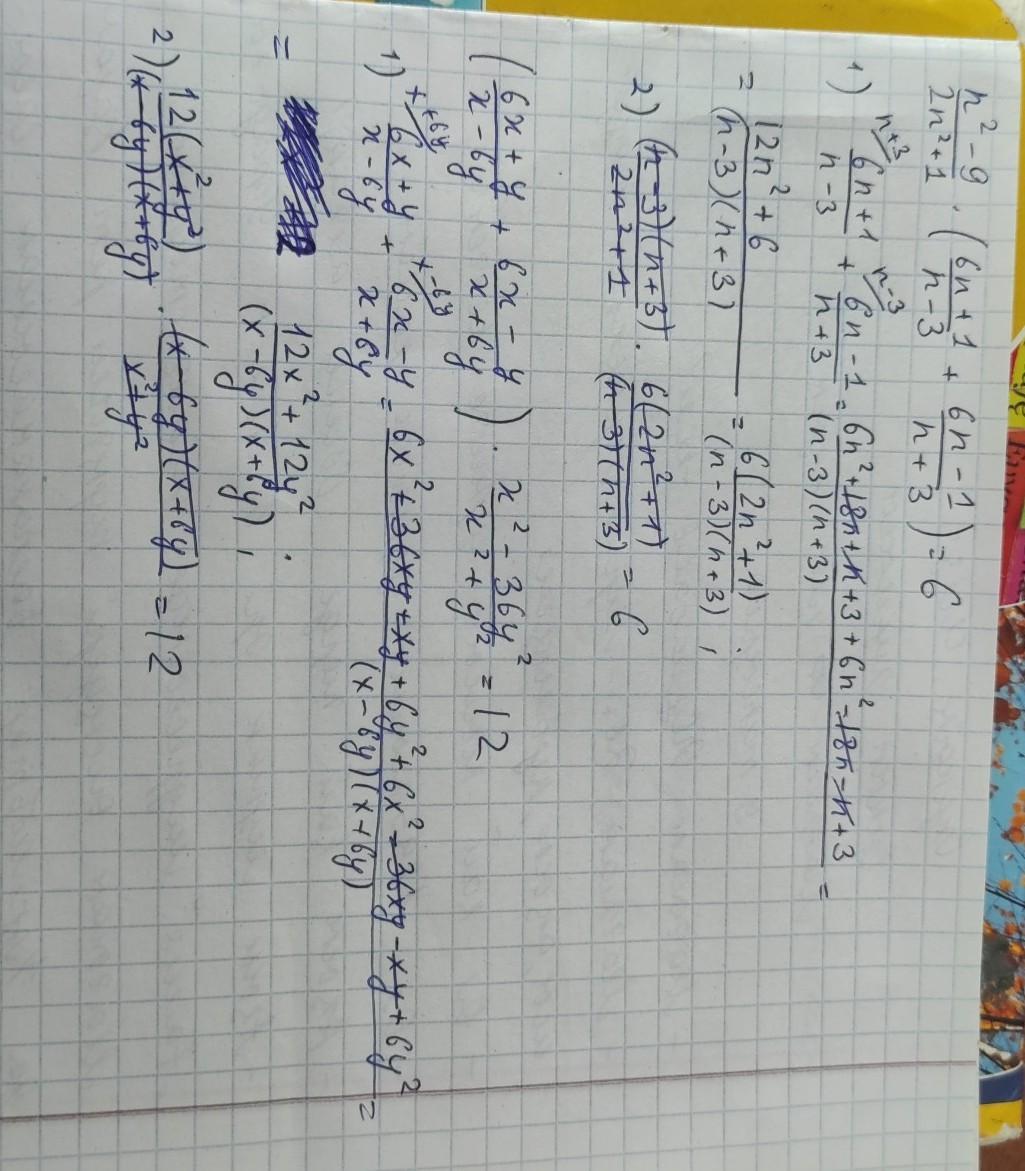 n² - 9 / 2n² + 1 · (6n + 1 / n - 3 + 6n - 1 / n + 3) = 6
1) n+3 6n + 1 / n - 3 + n-3 6n - 1 / n + 3 = 6n² + 18n + n + 3 + 6n² - 18n - n + 3 / (n - 3)(n + 3) =
= 12n² + 6 / (n - 3)(n + 3) = 6(2n² + 1) / (n - 3)(n + 3) ;
2) (n - 3)(n + 3) / 2n² + 1 · 6(2n² + 1) / (n - 3)(n + 3) = 6
(6x + y / x - 6y + 6x - y / x + 6y) · x² - 36y² / x² + y² = 12
1) x+6y 6x + y / x - 6y + x-6y 6x - y / x + 6y = 6x² + 36xy + xy + 6y² + 6x² - 36xy - xy + 6y² / (x - 6y)(x + 6y) =
= 12x² + 12y² / (x - 6y)(x + 6y) ;
2) 12(x² + y²) / (x - 6y)(x + 6y) · (x - 6y)(x + 6y) / x² + y² = 12